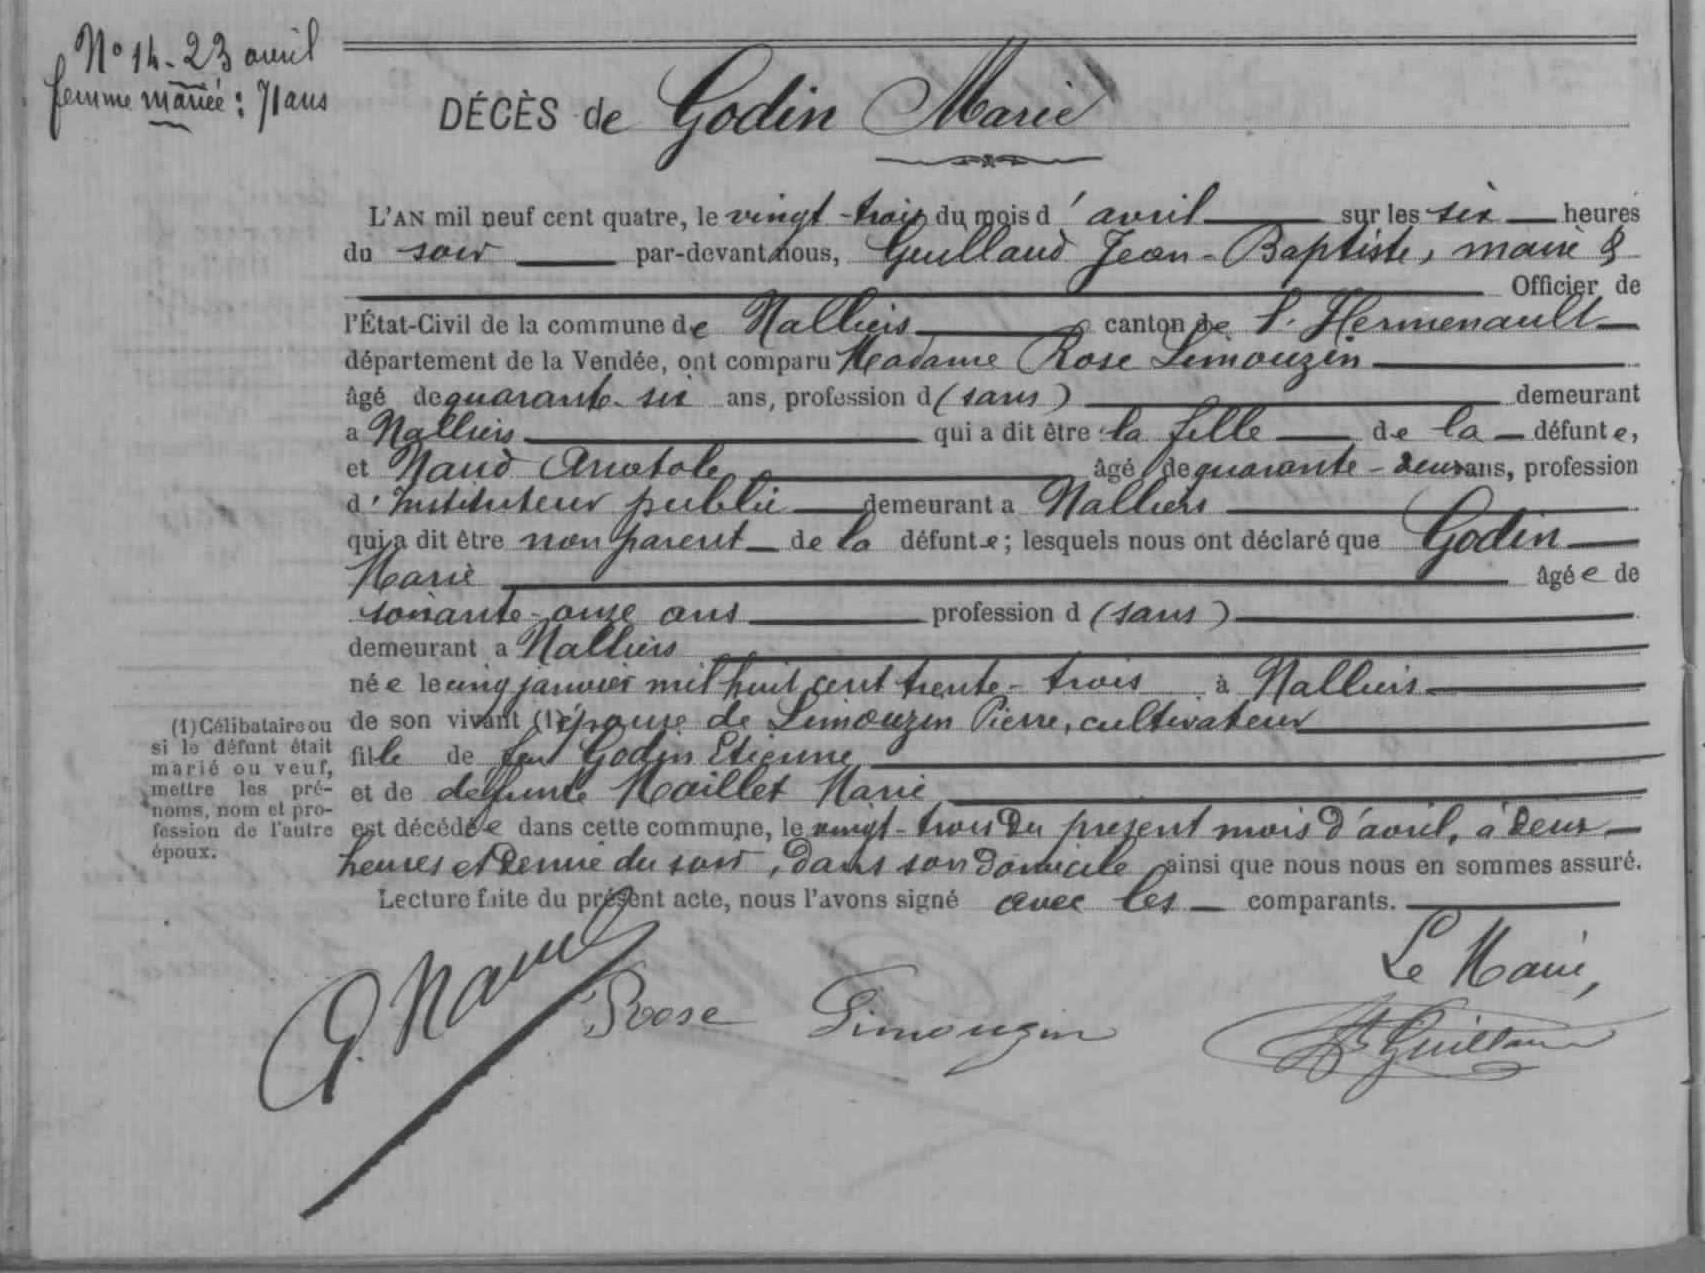 N° 14 - 23 avril
femme mariée : 71 ans
DÉCÈS de Godin Marie
L'AN mil neuf cent quatre, le vingt-trois du mois d'avril sur les six heures
du soir par-devant nous, Guillaud Jean-Baptiste, maire &
Officier de
l'État-Civil de la commune de Nalliers canton de l'Hermenault
département de la Vendée, ont comparu Madame Rose Limouzin
âgé de quarante-six ans, profession d (sans) demeurant
a Nalliers qui a dit être la fille de la défunte,
et Naud Anatole âgé de quarante-deux ans, profession
d'Instituteur public demeurant a Nalliers
qui a dit être non parent de la défunte ; lesquels nous ont déclaré que Godin
Marie âgée de
soixante-onze ans profession d (sans)
demeurant a Nalliers
née le cinq janvier mil huit cent trente-trois à Nalliers
de son vivant (1) épouse de Limouzin Pierre, cultivateur
fille de feu Godin Etienne
et de défunte Maillet Marie
est décédée dans cette commune, le vingt-trois du présent mois d'avril, à deux
heures et demie du soir, dans son domicile ainsi que nous nous en sommes assuré.
Lecture faite du présent acte, nous l'avons signé avec les comparants.
(1) Célibataire ou
si le défunt était
marié ou veuf,
mettre les pré-
noms, nom et pro-
fession de l'autre
époux.
Le Maire,
A. Naud
Rose Limouzin
Guillaud